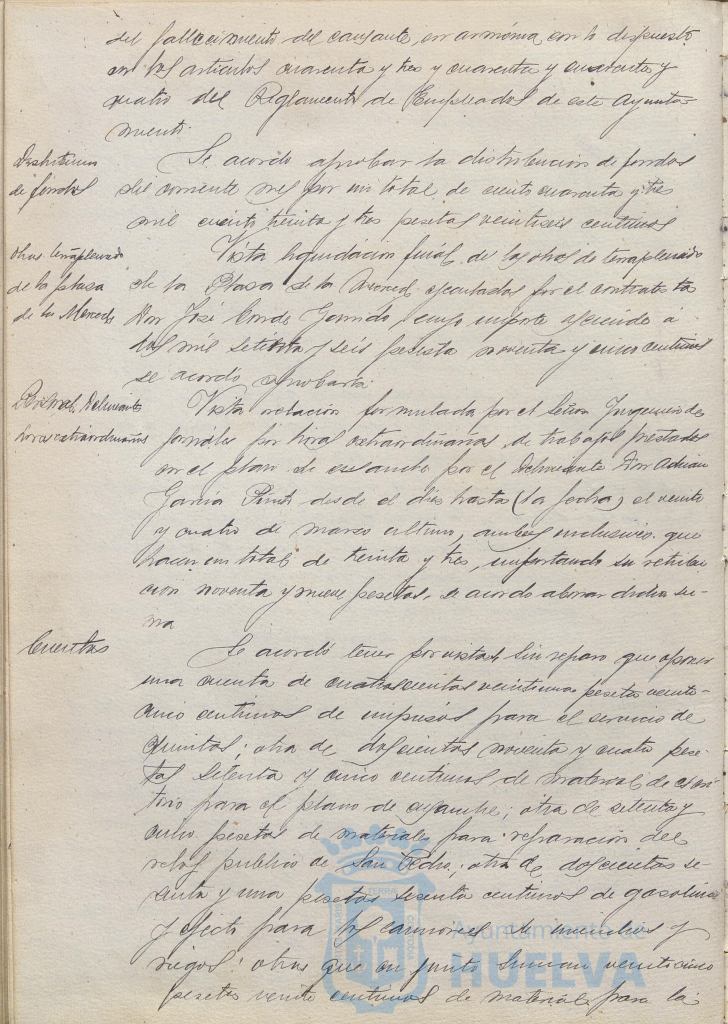 del fallecimiento del causante, en armonía con lo dispuesto
en los artículos cuarenta y tres y cuarenta y cuatro y
cuatro del Reglamento de Empleados de este Ayunta-
miento.
Distribucion
de fondos
Se acordó aprobar la distribución de fondos
del corriente mes por un total de ciento cuarenta y tres
mil ciento treinta y tres pesetas veintiseis centimos
Obras terraplenado
de la plaza
de la Merced
Vista liquidación final de las obras de terraplenado
de la Plaza de la Merced, ejecutadas por el contratista
Don José Garrido, cuyo importe asciende a
mil setenta y seis peseta noventa y cinco centimos
se acordó aprobarla.
Personal, Delineante
horas extraordinarias
Vista relación formulada por el Señor Ingeniero de
jornales por horas extraordinarias, de trabajos prestados
en el plano de ensanche por el Delineante Don Adrian
García desde el dia hasta (la fecha) el veinte
y cuatro de marzo ultimo, ambos inclusives, que
hacen un total de treinta y tres, importando su retribu
cion noventa y nueve pesetas, se acordó abonar dicha su-
ma
Cuentas
Se acordó tener por vistas sin reparo que oponer
una cuenta de cuatrocientas veintiuna pesetas veinti-
cinco centimos de impresos para el servicio de
Quintas; otra de doscientas noventa y cuatro pese-
tas setenta y cinco centimos de material de escri-
torio para el plano de ensanche; otra de setenta y
cinco pesetas de materiales para reparación del
reloj publico de San Pedro; otra de doscientas se-
senta y una pesetas sesenta centimos de gasolina
y efectos para los camiones de incendios y
riegos; otras que en junto suman veinticinco
pesetas veinte centimos de materiales para la
Ayuntamiento de
HUELVA